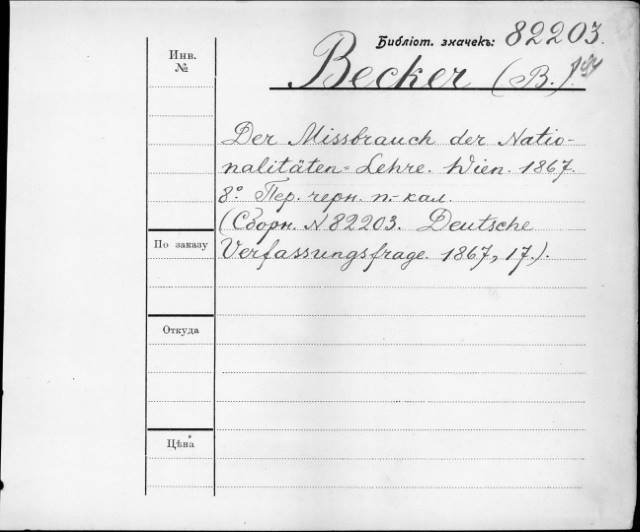 Библiот. значекъ: 82203.
Инв.
№
Becker (B.)
Der Missbrauch der Natio-
nalitäten-Lehre. Wien. 1867.
8º. Пер. черн. п.-кал.
(Сборн. N 82203. Deutsche
По заказу
Verfassungsfrage. 1867, 17.).
Откуда
Цѣна